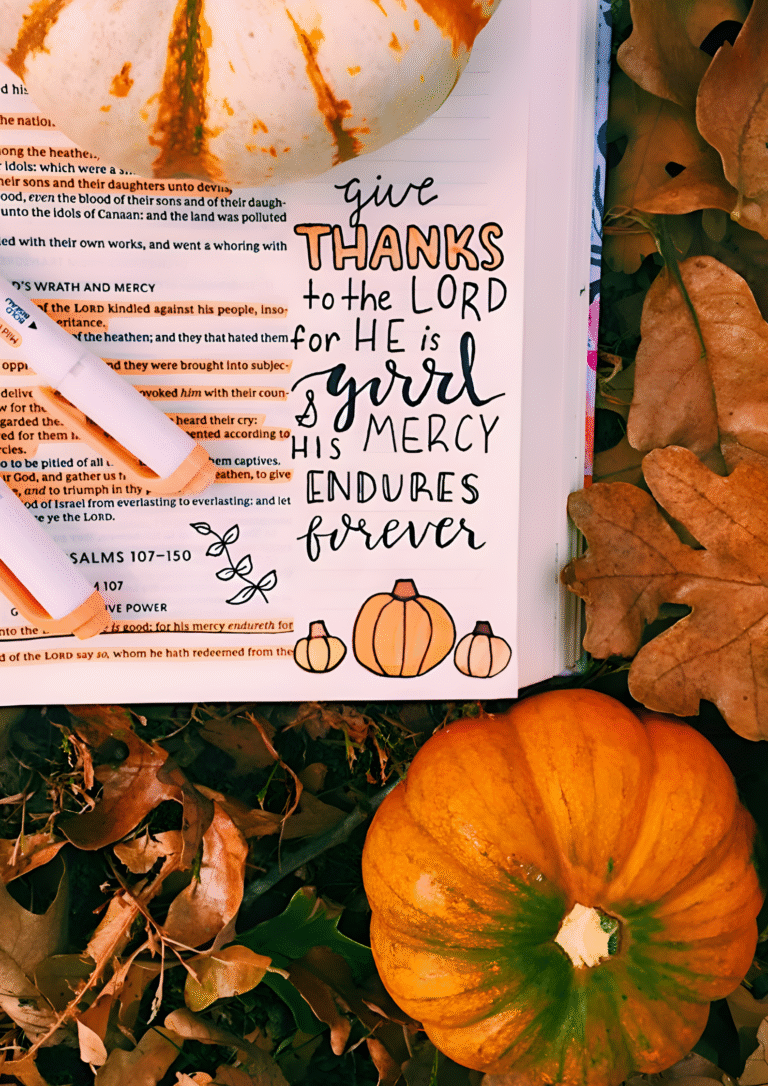 the nation
ong the heathen,
idols: which were a
heir sons and their daughters unto devils,
ood, even the blood of their sons and of their daugh-
unto the idols of Canaan: and the land was polluted
ed with their own works, and went a whoring with
D'S WRATH AND MERCY
of the LORD kindled against his people, inso-
eritance.
of the heathen; and they that hated them
and they were brought into subjec-
delive
voked him with their coun-
w for the
garded the
heard their cry:
ed for them
ented according to
rcies.
o to be pitied of all
em captives.
ur God, and gather us
eathen, to give
e, and to triumph in thy
od of Israel from everlasting to everlasting: and let
e ye the LORD.
SALMS 107–150
107
OVE POWER
nto the
is good: for his mercy endureth for
d of the LORD say so, whom he hath redeemed from the
Mild
give
THANKS
to the LORD
for HE is
good
&
HIS MERCY
ENDURES
forever